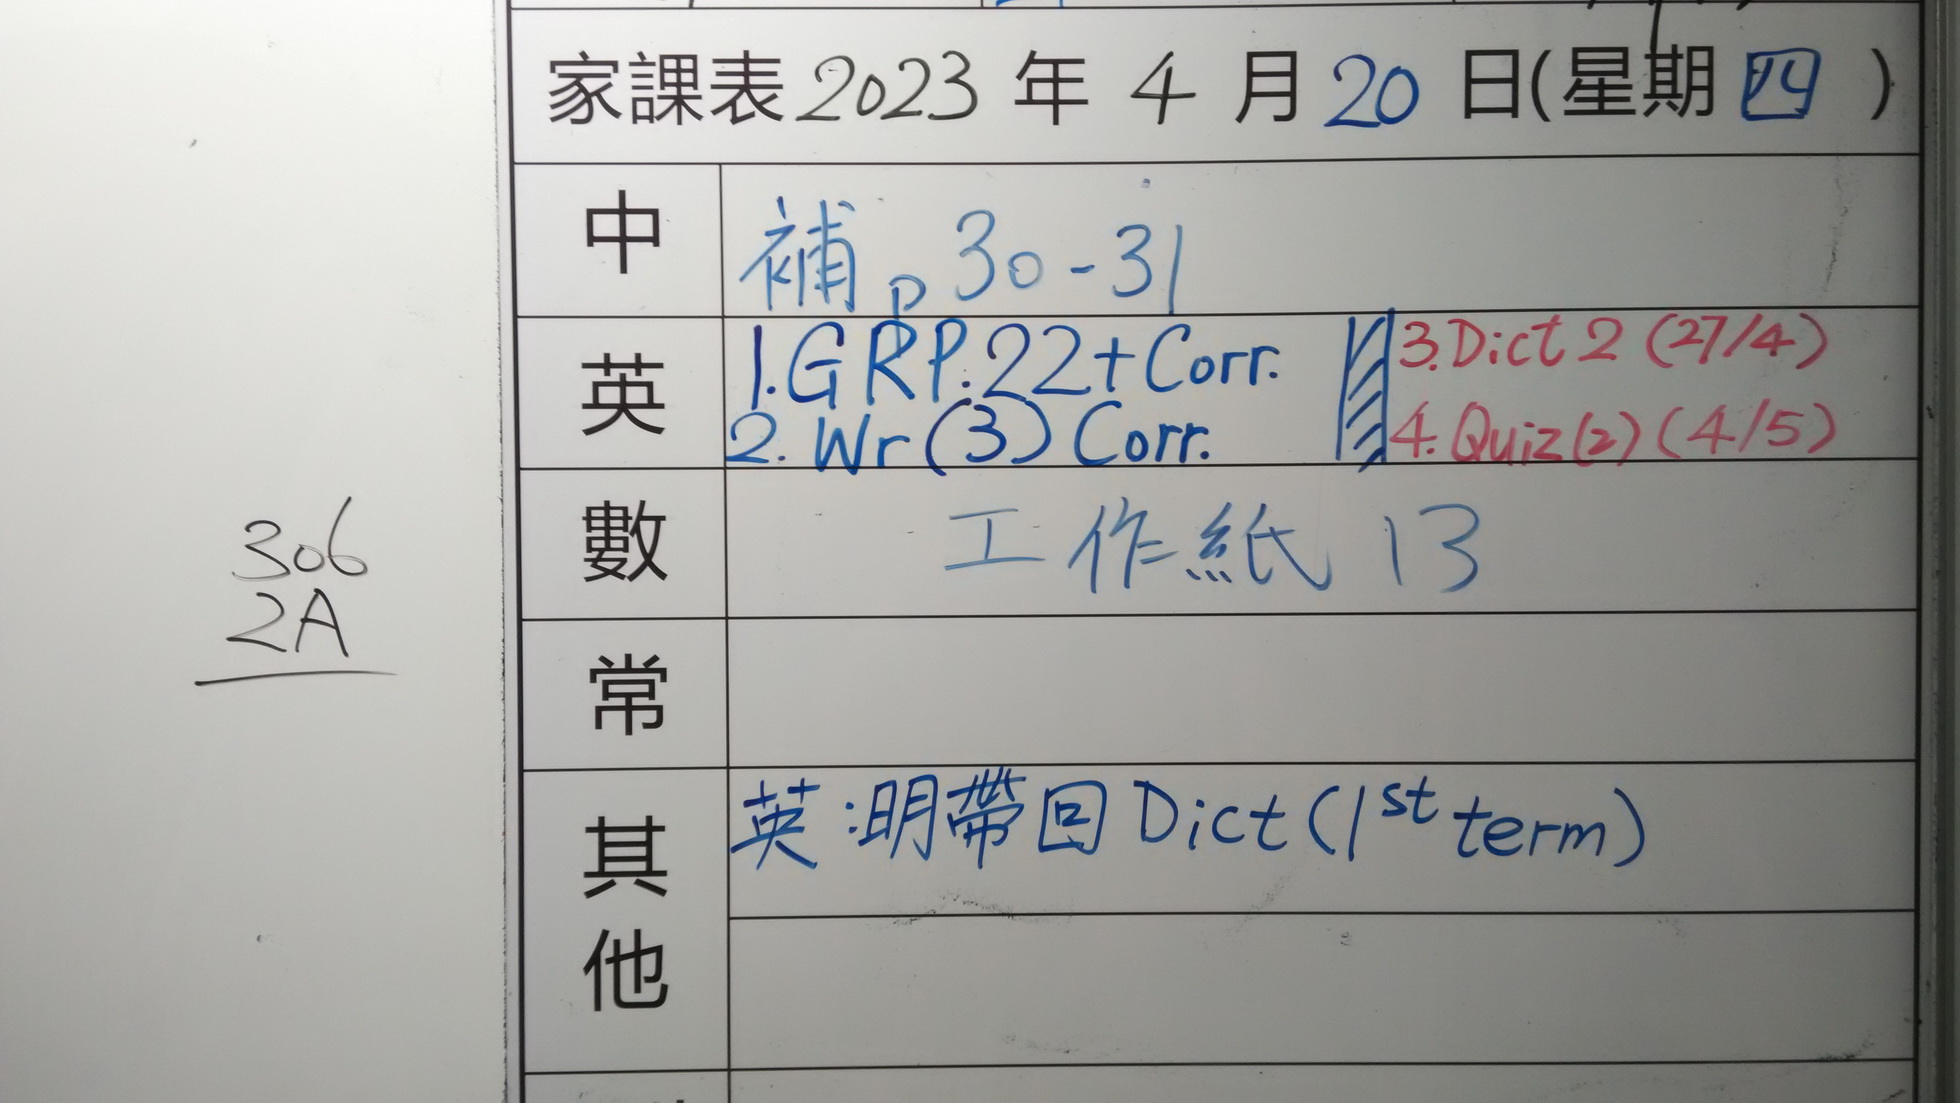 家課表 2023 年 4 月 20 日(星期 四 )
中 補 p 30-31
英 1. GRP.22+Corr. 3. Dict 2 (27/4)
2. Wr (3) Corr. 4. Quiz(2) (4/5)
數 工作紙 13
常
其他 英:明帶回 Dict (1st term)
306
2A